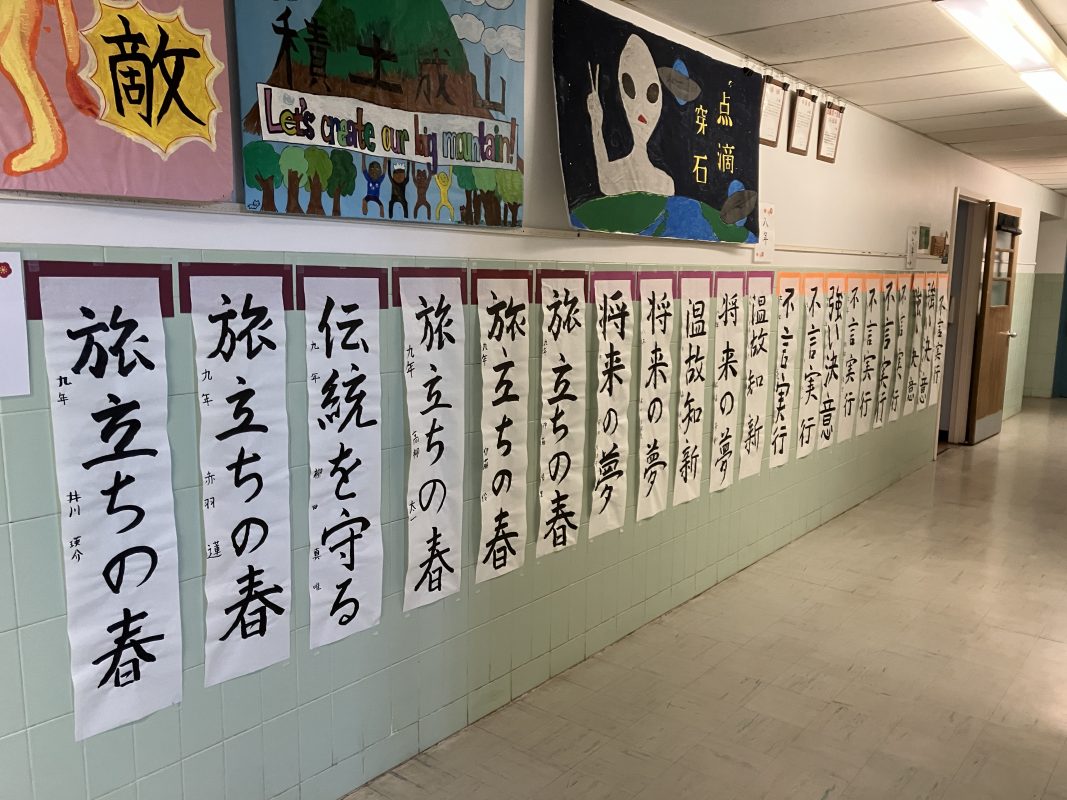 敵
積土成山
Let's create our big mountain!
点滴
穿石
八年
旅立ちの春
九年
井川 瑛介
旅立ちの春
九年
赤羽 蓮
伝統を守る
九年
柳田 真唯
旅立ちの春
九年
太一
旅立ちの春
九年
旅立ちの春
将来の夢
将来の夢
温故知新
将来の夢
温故知新
不言実行
不言実行
強い決意
不言実行
不言実行
不言実行
不言実行
強い決意
強い決意
不言実行